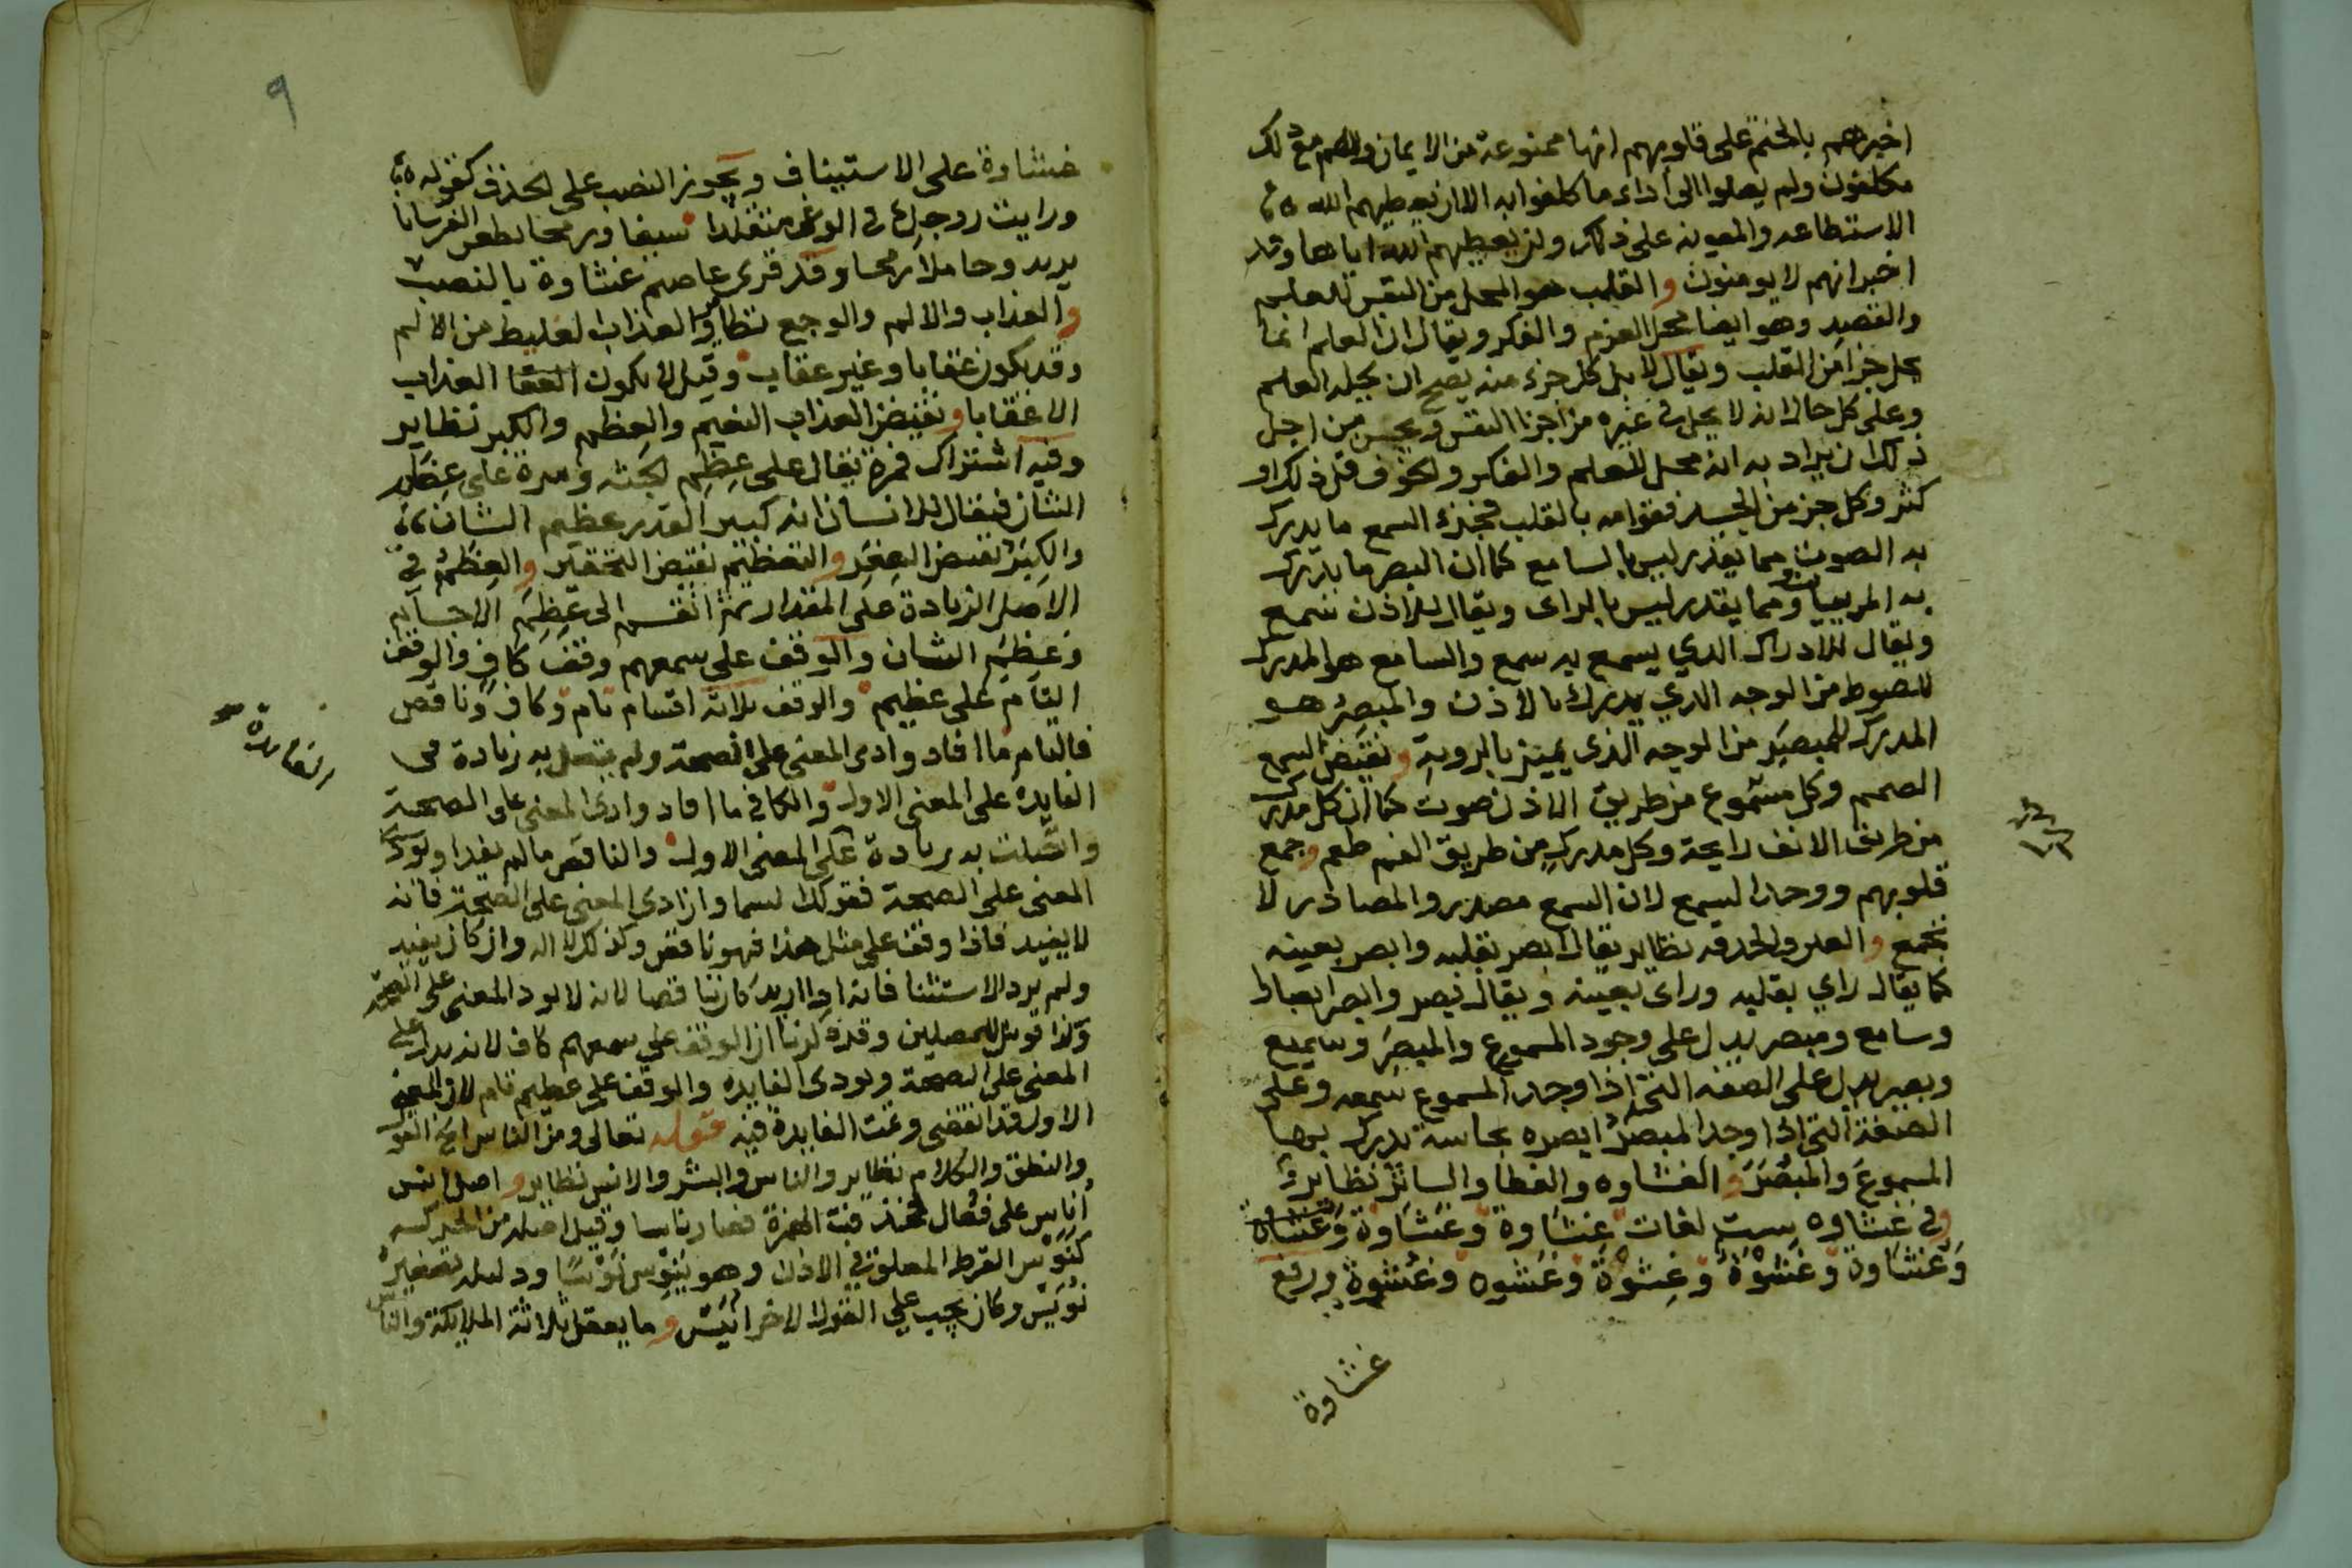 اخبرهم بالختم على قلوبهم انها ممنوعة من الايمان وانهم مع ذلك
مكلفون ولم يصلوا الى اداء ما كلفوا به الا ان يعطيهم الله
الاستطاعه والمعونه على ذلك ولن يعطيهم الله اياها وقد
اخبر انهم لا يومنون والقلب هو المحل من النفس للعلم
والقصد وهو ايضا محل العزم والفكر ويقال ان العلم انما
يحل جزا من القلب ويقال لا بل كل جزء منه يصح ان يحله العلم
وعلى كل حال انه لا يحل في غيره من اجزا النفس من اجل
ذلك ان يراد به انه محل للعلم والفكر والخوف قل ذلك او
كثر وكل جز من الجسد فقوامه بالقلب فجزء السمع ما يدرك
به الصوت مما يقدر ليس بالسامع كما ان البصر ما يدرك
به المرييات ومما يقدر ليس بالراى ويقال للاذن سمع
ويقال للادراك الدي يسمع به سمع والسامع هو المدرك
للصوط من الوجه الدي يدرك بالاذن والمبصر هو
المدرك للمبصر من الوجه الذى يميز بالروية ونقيض السمع
الصمم وكل مسموع من طريق الاذن صوت كما ان كل مدرك
من طريق الانف رايحة وكل مدرك من طريق الفم طعم وجمع
قلوبهم ووحد السمع لان السمع مصدر والمصادر لا
تجمع والعين والحدقه نظاير يقال ابصر بقلبه وابصر بعينه
كما يقال راي بقلبه وراى بعينه ويقال بصر وابصر ابصارا
وسامع ومبصر يدل على وجود المسموع والمبصر وسميع
وبصير يدل على الصفه التى اذا وجد المسموع سمعه وعلى
الصفة التى اذا وجد المبصر ابصره بحاسة يدرك بها
المسموع والمبصر و الغشاوه والغطا والساتر نظاير
وفي غشاوه ست لغات غشاوة وغشاوة وغشاوة
وغشاوة وغشوة وغشوة وغشوه وغشوة ورفع
غشاوة
٩
غشاوة على الاستيناف ويجوز النصب على الحذف كقوله
ورايت زوجك في الوغى متقلدا سيفا ورمحا يطعن الفرسانا
يريد وحاملا رمحا وقد قرى عاصم غشاوة بالنصب
والعذاب والالم والوجع نظاير العذاب الغليظ من الالم
وقد يكون عقابا وغير عقاب وقيل لا يكون العذاب
الا عقابا ونقيض العذاب النعيم والعظم والكبر نظاير
وفيه اشتراك فمرة يقال على عظم الجثه ومرة على عظم
الشان فيقال للانسان انه كبير القدر عظيم الشان
والكبر نقيض الصغر والتعظيم نقيض التحقير والعظم في
الاصل الزيادة على المقدار ثم انقسم الى عظم الاجسام
وعظم الشان والوقف على سمعهم وقف كاف والوقف
التام على عظيم والوقف ثلاثه اقسام تام وكاف وناقص
فالتام ما افاد وادى المعنى على الصحة ولم يتصل به زيادة في
الفايدة
الفايدة على المعنى الاول والكافي ما افاد وادى المعنى على الصحة
واتصلت به زيادة على المعنى الاول والناقص ما لم يفد او يود
المعنى على الصحة فقولك لسما وان ادى المعنى على الصحة فانه
لا يفيد فاذا وقف على مثل هذا فهو ناقص وكذلك لا اله وان كان يفيد
ولم يرد الاستثنا فانه اذا اريد كان ناقصا لانه لا يود المعنى على الصحة
وكذا فويل للمصلين وقد ذكرنا ان الوقف على سمعهم كاف لانه يدل على
المعنى على الصحة ويودى الفايده والوقف على عظيم تام لان المعنى
الاول قد انقضى وتمت الفايدة فيه قوله تعالى ومن الناس القول
والنطق والكلام نظاير والناس والبشر والانس نظاير و اصل الناس
أناس على فعال حذفت الهمزة فصار ناسا وقيل اصله من الحركه
كنوس القرط المعلق في الاذن وهو ينوس نوسا ودليله تصغيره
نويس وكان يجب على القول الاخر انيس وما يعقل ثلاثة الملايكة والناس